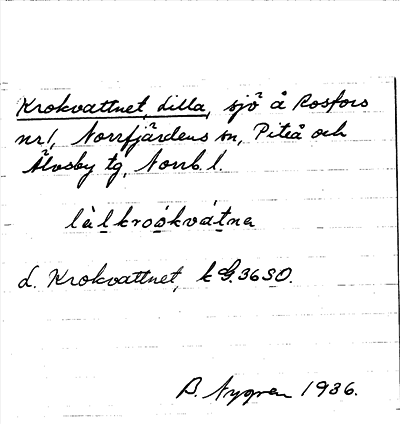 Krokvattnet, Lilla, sjö å Rosfors
nr1, Norrfjärdens sn, Piteå och
Älvsby tg, Norrb. l.
làlkroókvátna
L. Krokvattnet, k G. 36 SO.
B. Nygren 1936.